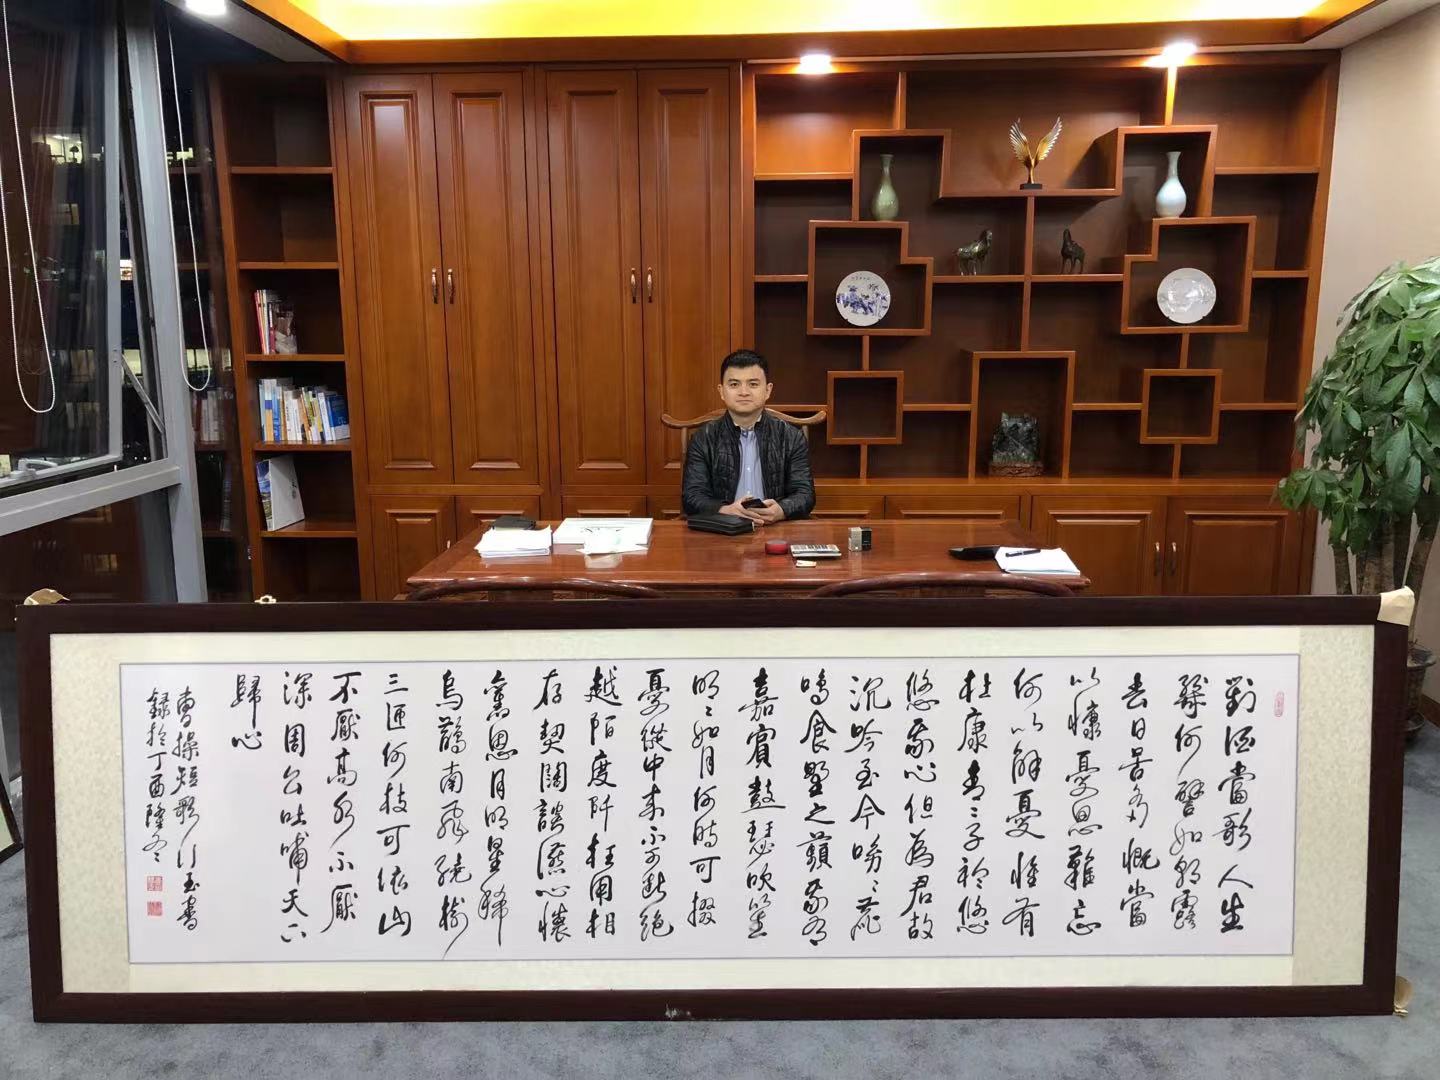 對酒當歌人生
幾何譬如朝露
去日苦多慨當
以慷憂思難忘
何以解憂惟有
杜康青〻子衿悠
悠我心但為君故
沉吟至今呦〻鹿
鳴食野之蘋我有
嘉賓鼓瑟吹笙
明〻如月何時可掇
憂從中來不可斷絕
越陌度阡枉用相
存契闊談讌心懷
舊恩月明星稀
烏鵲南飛繞樹
三匝何枝可依山
不厭高水不厭
深周公吐哺天下
歸心
曹操短歌行玉書
錄於丁酉隆冬